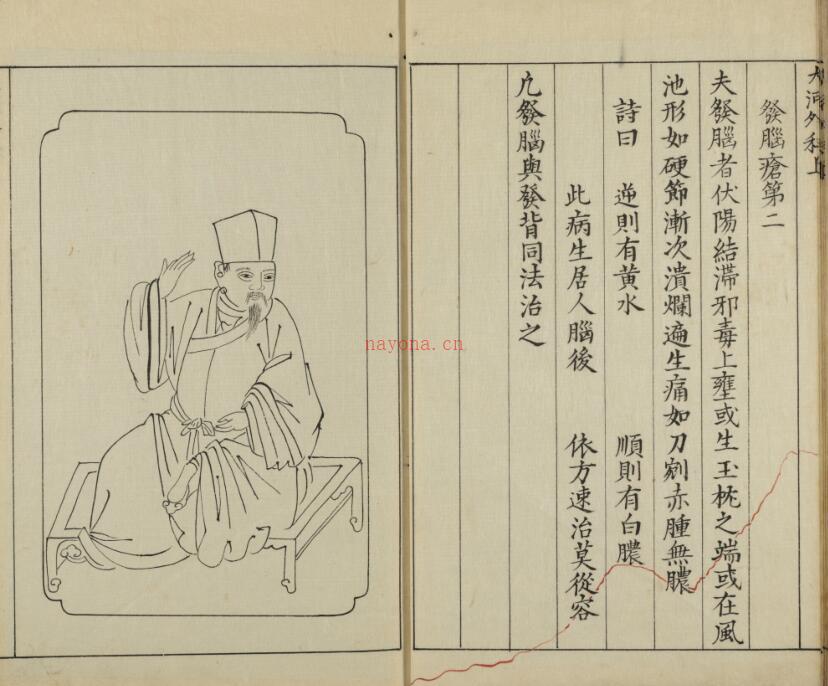 大河外科上
發腦瘡第二
夫發腦者伏陽結滯邪毒上壅或生玉枕之端或在風
池形如硬節漸次潰爛遍生痛如刀剜赤腫無膿
詩曰 逆則有黄水 順則有白膿
此病生居人腦後 依方速治莫從容
凢發腦與發背同法治之
nayona.cn